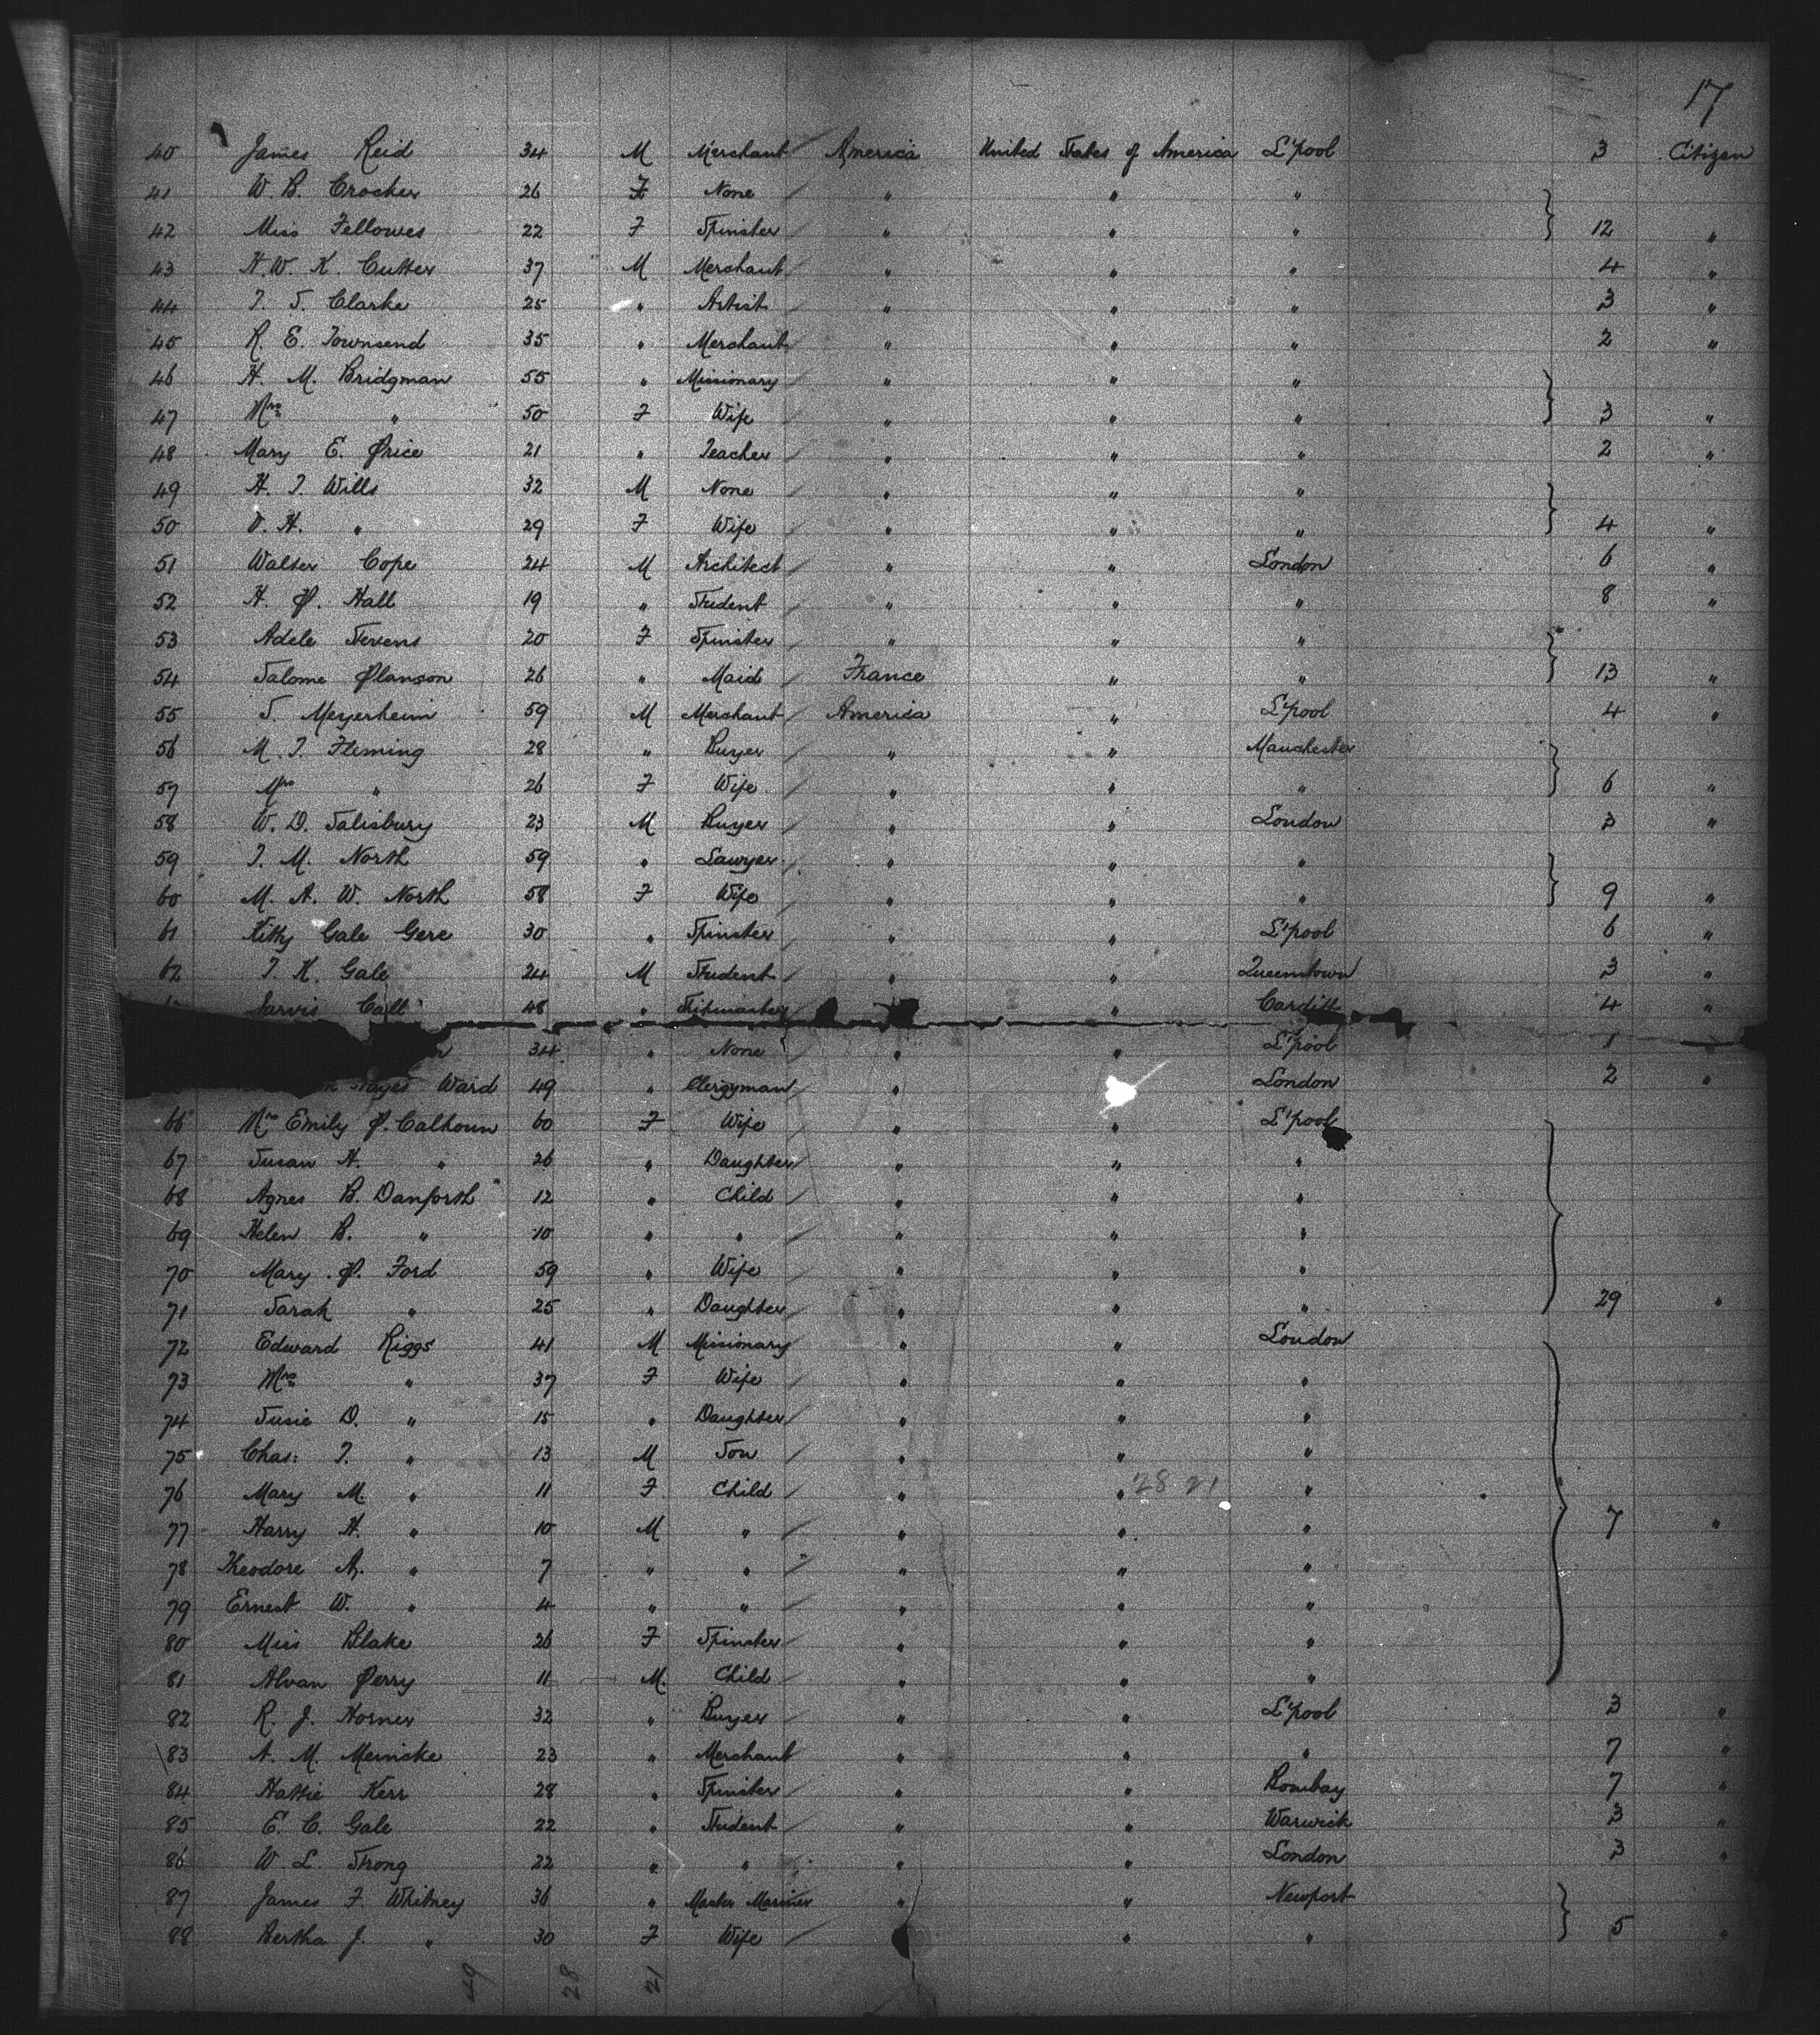 17
40 James Reid 34 M Merchant America United States of America L'pool 3 Citizen
41 W. B. Crocker 26 F None " " "
42 Miss Fellowes 22 F Spinster " " " 12 "
43 H. W. K. Cutter 37 M Merchant " " " 4 "
44 T. S. Clarke 25 " Artist " " " 3 "
45 R. E. Townsend 35 " Merchant " " " 2 "
46 H. M. Bridgman 55 " Missionary " " "
47 Mrs " 50 F Wife " " " 3 "
48 Mary E. Price 21 " Teacher " " " 2 "
49 H. T. Wills 32 M None " " "
50 V. H. " 29 F Wife " " " 4 "
51 Walter Cope 24 M Architect " " London 6 "
52 H. P. Hall 19 " Student " " " 8 "
53 Adele Stevens 20 F Spinster " " "
54 Salome Planson 26 " Maid France " " 13 "
55 S. Meyerheim 59 M Merchant America " L'pool 4 "
56 M. T. Fleming 28 " Buyer " " Manchester
57 Mrs " 26 F Wife " " " 6 "
58 W. D. Salisbury 23 M Buyer " " London 3 "
59 T. M. North 59 " Lawyer " " "
60 M. A. W. North 58 F Wife " " " 9 "
61 Kitty Gale Gere 30 " Spinster " " L'pool 6 "
62 T. K. Gale 24 M Student " " Queenstown 3 "
Jarvis 48 " " Cardiff 4 "
34 " None " " L'pool 1
Hayes Ward 49 " Clergyman " London 2 "
66 Mrs Emily P. Calhoun 60 F Wife " " L'pool
67 Susan H. " 26 " Daughter " " "
68 Agnes B. Danforth 12 " Child " " "
69 Helen B. " 10 " " " " "
70 Mary P. Ford 59 " Wife " " "
71 Sarah " 25 " Daughter " " " 29 "
72 Edward Riggs 41 M Missionary " " London
73 Mrs " 37 F Wife " " "
74 Susie D. " 15 " Daughter " " "
75 Chas: T. " 13 M Son " " "
76 Mary M. " 11 F Child " " 28 21 "
77 Harry H. " 10 M " " " " 7 "
78 Theodore A. " 7 " " " " "
79 Ernest W. " 4 " " " " "
80 Miss Blake 26 F Spinster " " "
81 Alvan Perry 11 M. Child " " "
82 R. J. Horner 32 " Buyer " " L'pool 3 "
83 A. M. Meincke 23 " Merchant " " " 7 "
84 Hattie Kerr 28 " Spinster " " Bombay 7 "
85 E. C. Gale 22 " Student " " Warwick 3 "
86 W. L. Strong 22 " " " " London 3 "
87 James F. Whitney 36 " Master Mariner " " Newport
88 Bertha J. " 30 F Wife " " 5 "
49 28 21